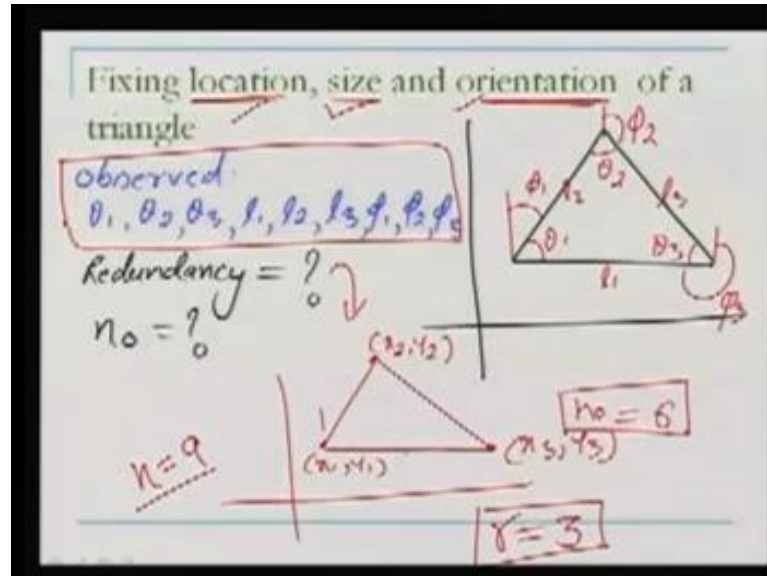 Fixing location, size and orientation of a
triangle
observed:
θ1, θ2, θ3, l1, l2, l3, φ1, φ2, φ3
Redundancy = ?
n0 = ?
φ2
θ2
φ1
l2
l3
θ1
θ3
l1
φ3
(x2, y2)
n0 = 6
n=9
1
(x1, y1)
(x3, y3)
r = 3